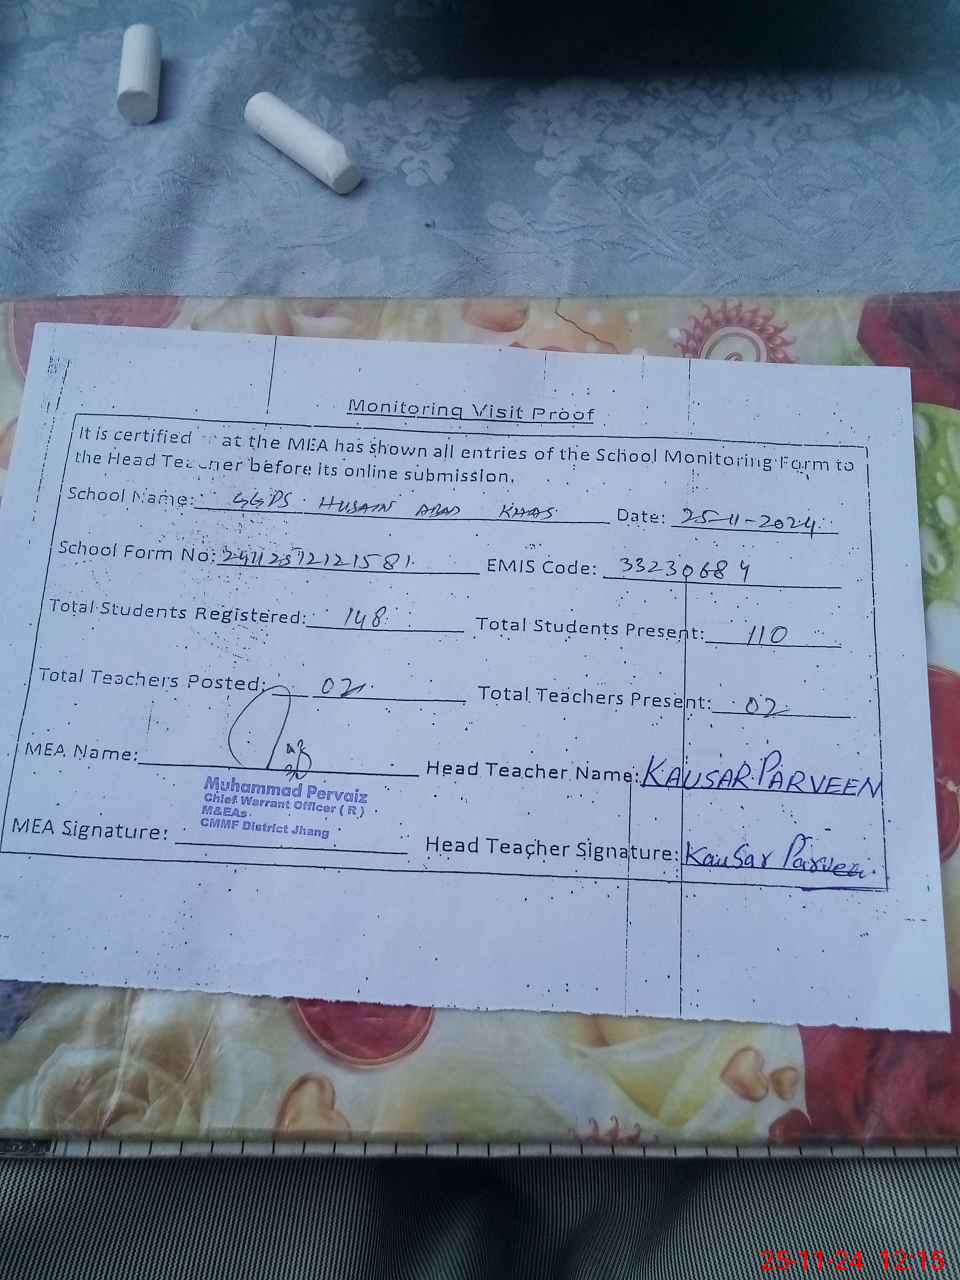 Monitoring Visit Proof
It is certified at the MEA has shown all entries of the School Monitoring Form to
the Head Teacher before its online submission.
School Name: GGPS HUSAIN ABAD KHAS Date: 25-11-2024
School Form No: EMIS Code: 33230684
Total Students Registered: 148 Total Students Present: 110
Total Teachers Posted: 02 Total Teachers Present: 02
MEA Name: Head Teacher Name: KAUSAR PARVEEN
Muhammad Pervaiz
Chief Warrant Officer ( R )
M&EAs
CMMF District Jhang
MEA Signature: Head Teacher Signature: Kausar Parveen
25-11-24 12:15